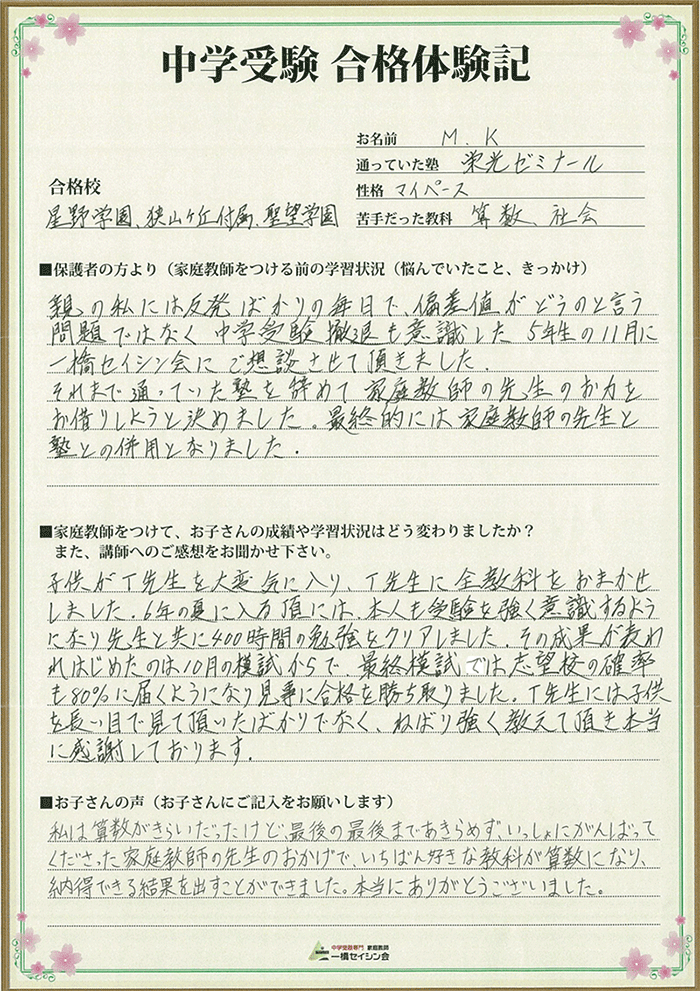 中学受験 合格体験記
お名前 M.K
通っていた塾 栄光ゼミナール
性格 マイペース
苦手だった教科 算数、社会
合格校
星野学園、狭山ヶ丘付属、聖望学園
■保護者の方より（家庭教師をつける前の学習状況（悩んでいたこと、きっかけ）
親の私には反発ばかりの毎日で、偏差値がどうのと言う
問題ではなく中学受験撤退も意識した5年生の11月に
一橋セイシン会にご想談させて頂きました．
それまで通っていた塾を辞めて家庭教師の先生のお力を
お借りしようと決めました。最終的には家庭教師の先生と
塾との併用となりました．
■家庭教師をつけて、お子さんの成績や学習状況はどう変わりましたか？
また、講師へのご感想をお聞かせ下さい。
子供がT先生を大変気に入り、T先生に全教科をおまかせ
しました．6年の夏に入る頃には、本人も受験を強く意識するよう
になり先生と共に400時間の勉強をクリアしました．その成果が表わ
れはじめたのは10月の模試からで 最終模試では志望校の確率
も80%に届くようになり見事に合格を勝ち取りました。T先生には子供
を長い目で見て頂いたばかりでなく、ねばり強く教えて頂き本当
に感謝しております．
■お子さんの声（お子さんにご記入をお願いします）
私は算数がきらいだったけど、最後の最後まであきらめず、いっしょにがんばって
くださった家庭教師の先生のおかげで、いちばん好きな教科が算数になり、
納得できる結果を出すことができました。本当にありがとうございました。
中学受験専門 家庭教師
一橋セイシン会